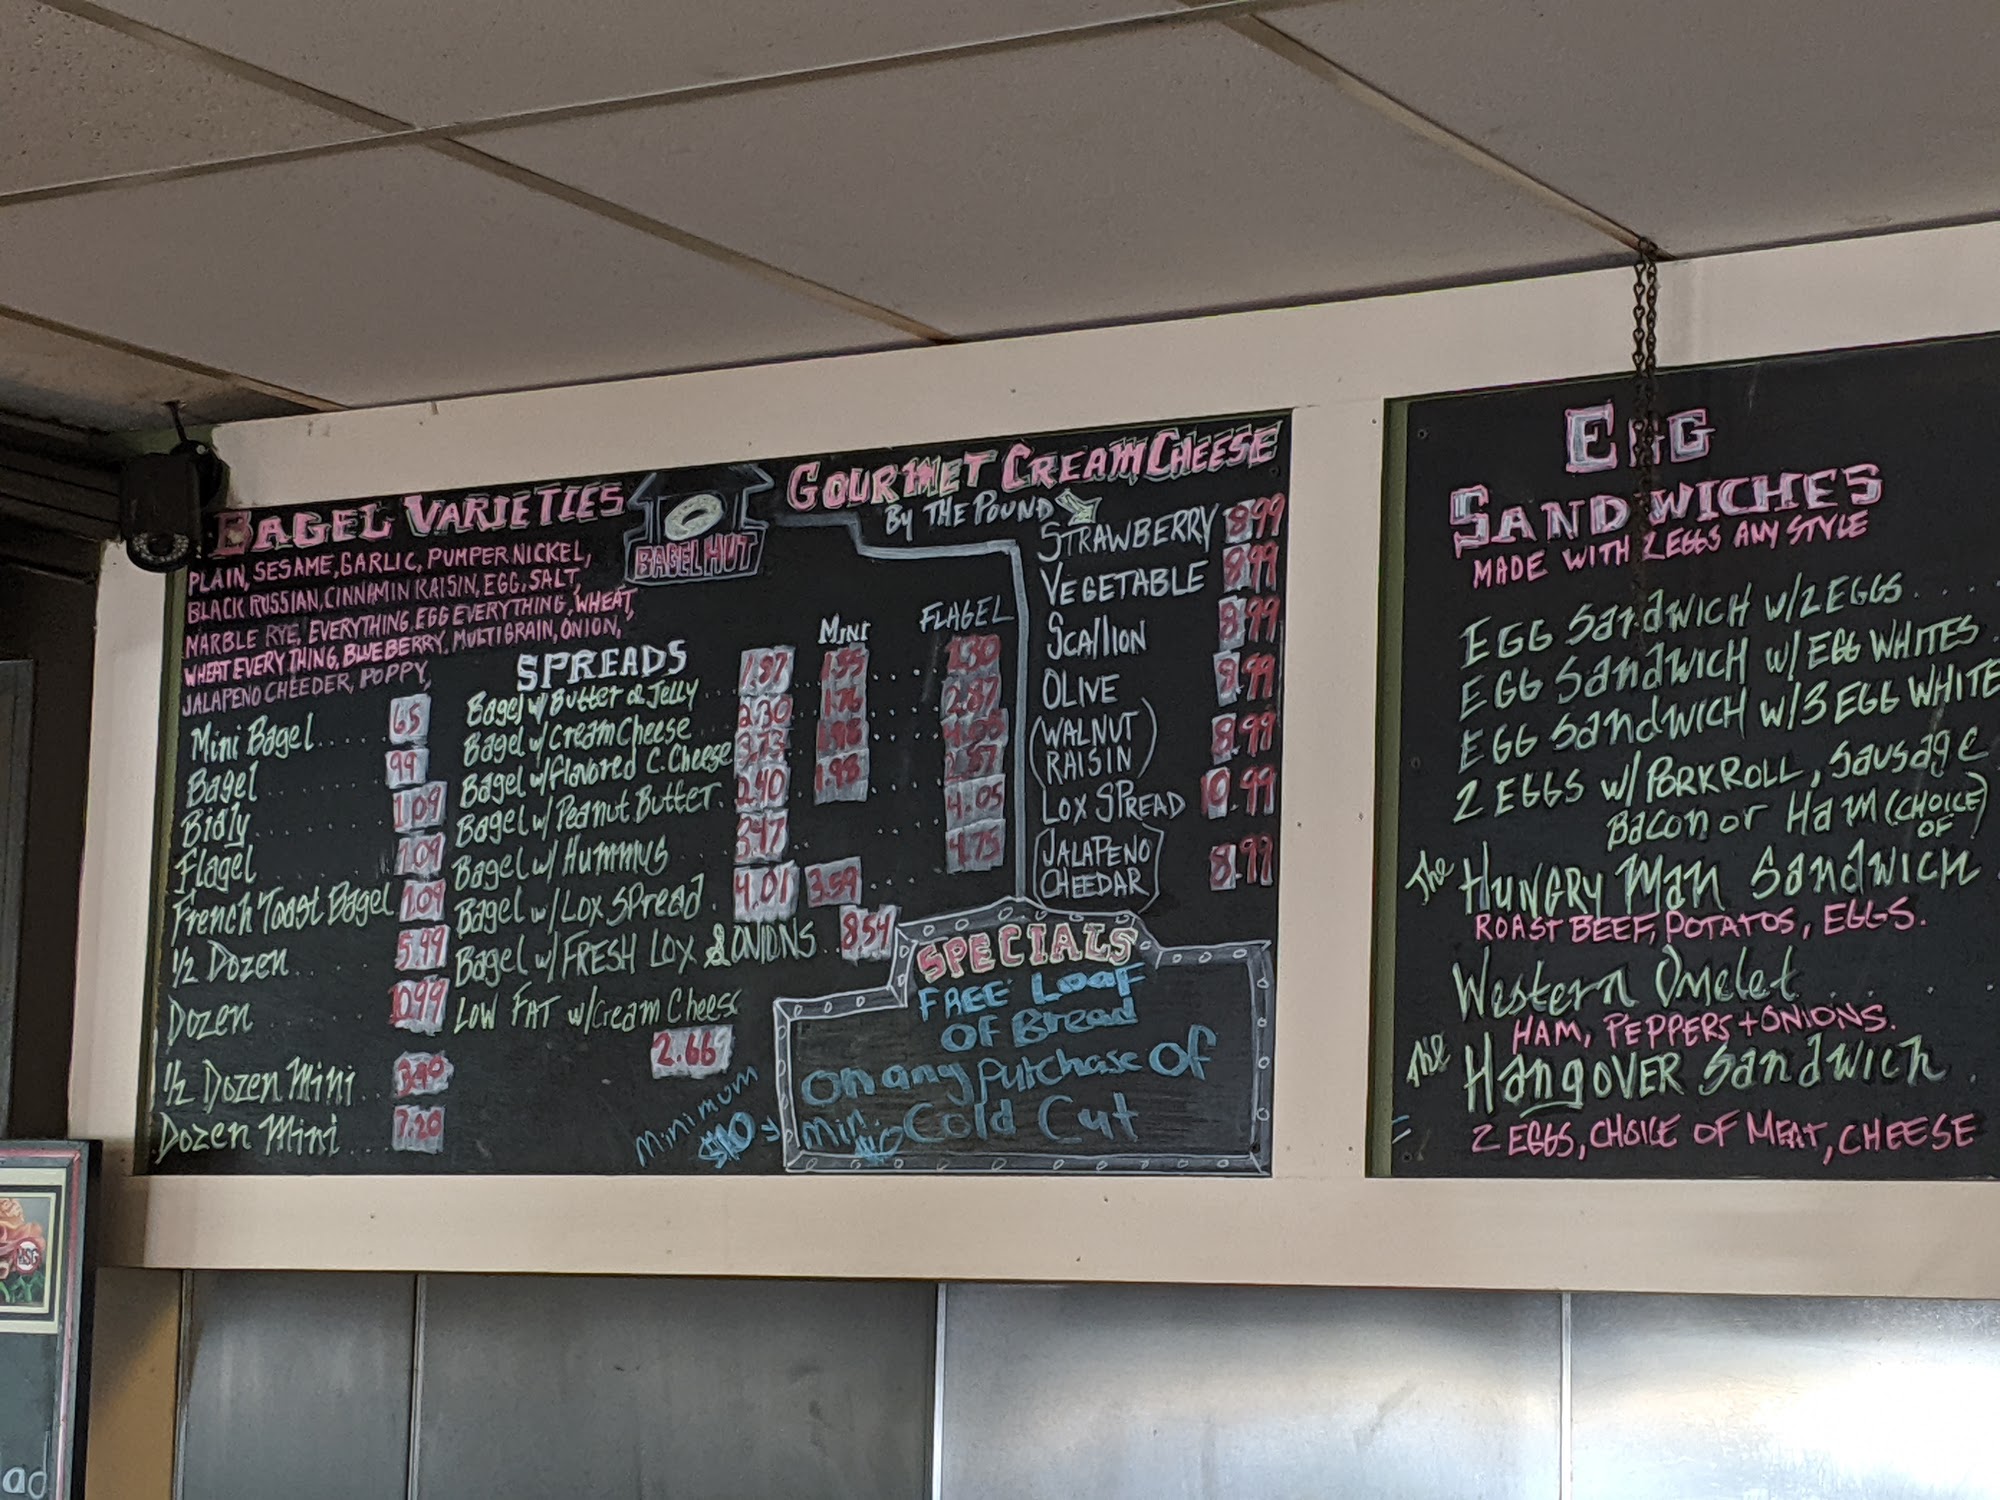 BAGEL VARIETIES
PLAIN, SESAME, GARLIC, PUMPERNICKEL,
BLACK RUSSIAN, CINNAMIN RAISIN, EGG, SALT,
MARBLE RYE, EVERYTHING, EGG EVERYTHING, WHEAT,
WHEAT EVERYTHING, BLUEBERRY, MULTIGRAIN, ONION,
JALAPENO CHEEDER, POPPY,
Mini Bagel.... 65
Bagel 99
Bialy........ 1.09
Flagel 1.09
French Toast Bagel 1.09
1/2 Dozen.... 5.99
Dozen 10.99
1/2 Dozen Mini 3.90
Dozen Mini... 7.20
BAGEL HUT
SPREADS
MINI
FLAGEL
Bagel w/ Butter & Jelly... 1.87 1.55 2.30
Bagel w/ Cream Cheese 2.30 1.76 2.87
Bagel w/ Flavored C. Cheese 3.73 1.98
Bagel w/ Peanut Butter. 2.40 1.98
Bagel w/ Hummus 3.47 4.05
Bagel w/ Lox Spread. 4.01 3.59 4.75
Bagel w/ FRESH LOX & ONIONS.. 8.54
LOW FAT w/ Cream Cheese
2.66
GOURMET CREAM CHEESE
BY THE POUND
STRAWBERRY 8.99
VEGETABLE 8.99
Scallion 8.99
OLIVE 8.99
(WALNUT
RAISIN) 8.99
LOX SPREAD 10.99
(JALAPENO
CHEEDAR) 8.99
SPECIALS
FREE Loaf
OF Bread
on any purchase OF
min. $10 Cold Cut
Minimum
$10
EGG
SANDWICHES
MADE WITH 2 EGGS ANY STYLE
EGG Sandwich w/2 EGGS....
EGG Sandwich w/ EGG WHITES
EGG Sandwich w/3 EGG WHITE
2 EGGS w/ PORKROLL, Sausage
Bacon or Ham (CHOICE
OF)
The HUNGRY Man Sandwich
ROAST BEEF, POTATOS, EGGS.
Western Omelet
HAM, PEPPERS + ONIONS.
The Hangover Sandwich
2 EGGS, CHOICE OF MEAT, CHEESE
MSG
ad